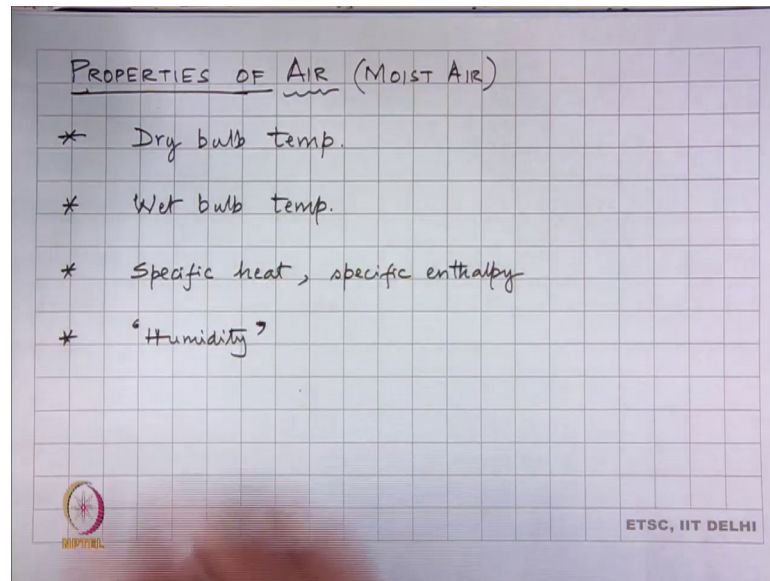 PROPERTIES OF AIR (MOIST AIR)
* Dry bulb temp.
* Wet bulb temp.
* Specific heat, specific enthalpy
* "Humidity"
NPTEL
ETSC, IIT DELHI